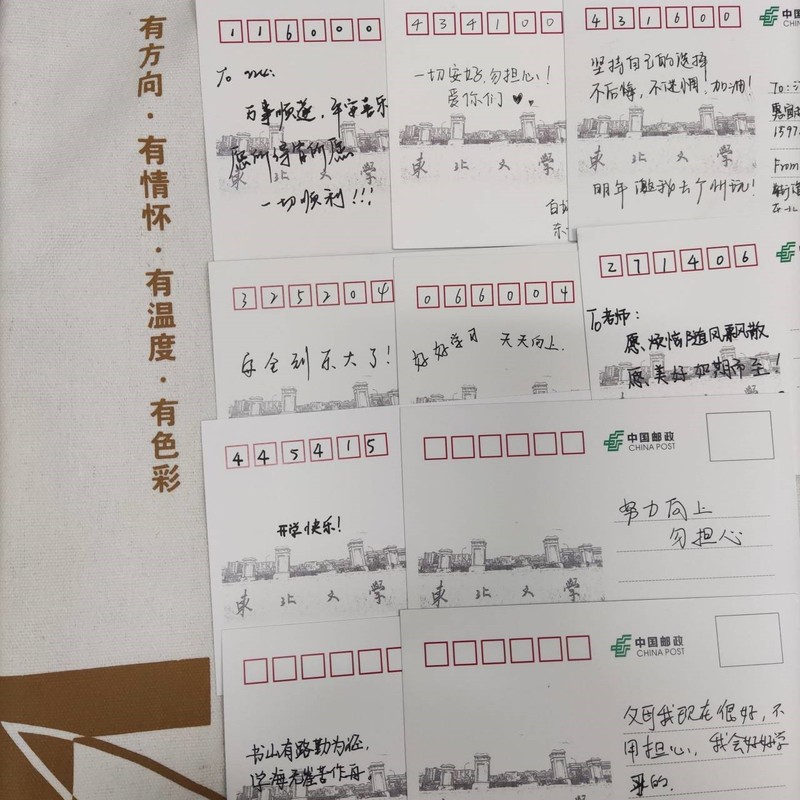 有方向·有情怀·有温度·有色彩
116000
万事顺遂，平安喜乐
愿所得皆所愿
一切顺利!!!
東北大學
434100
一切安好，勿担心！
爱你们
東北大學
431600
坚持自己的选择
不后悔，不迷惘，加油！
明年邀我去广州玩！
東北大學
中国
CHIN
To:
1597
From
325204
安全到东大了！
066004
好好学习 天天向上.
271406
To老师：
愿烦恼随风飘散
愿美好如期而至！
445415
开学快乐！
東北大學
中国邮政
CHINA POST
努力向上
勿担心
東北大學
书山有路勤为径，
学海无崖苦作舟。
中国邮政
CHINA POST
父母我现在很好，不
用担心，我会好好学
习的.